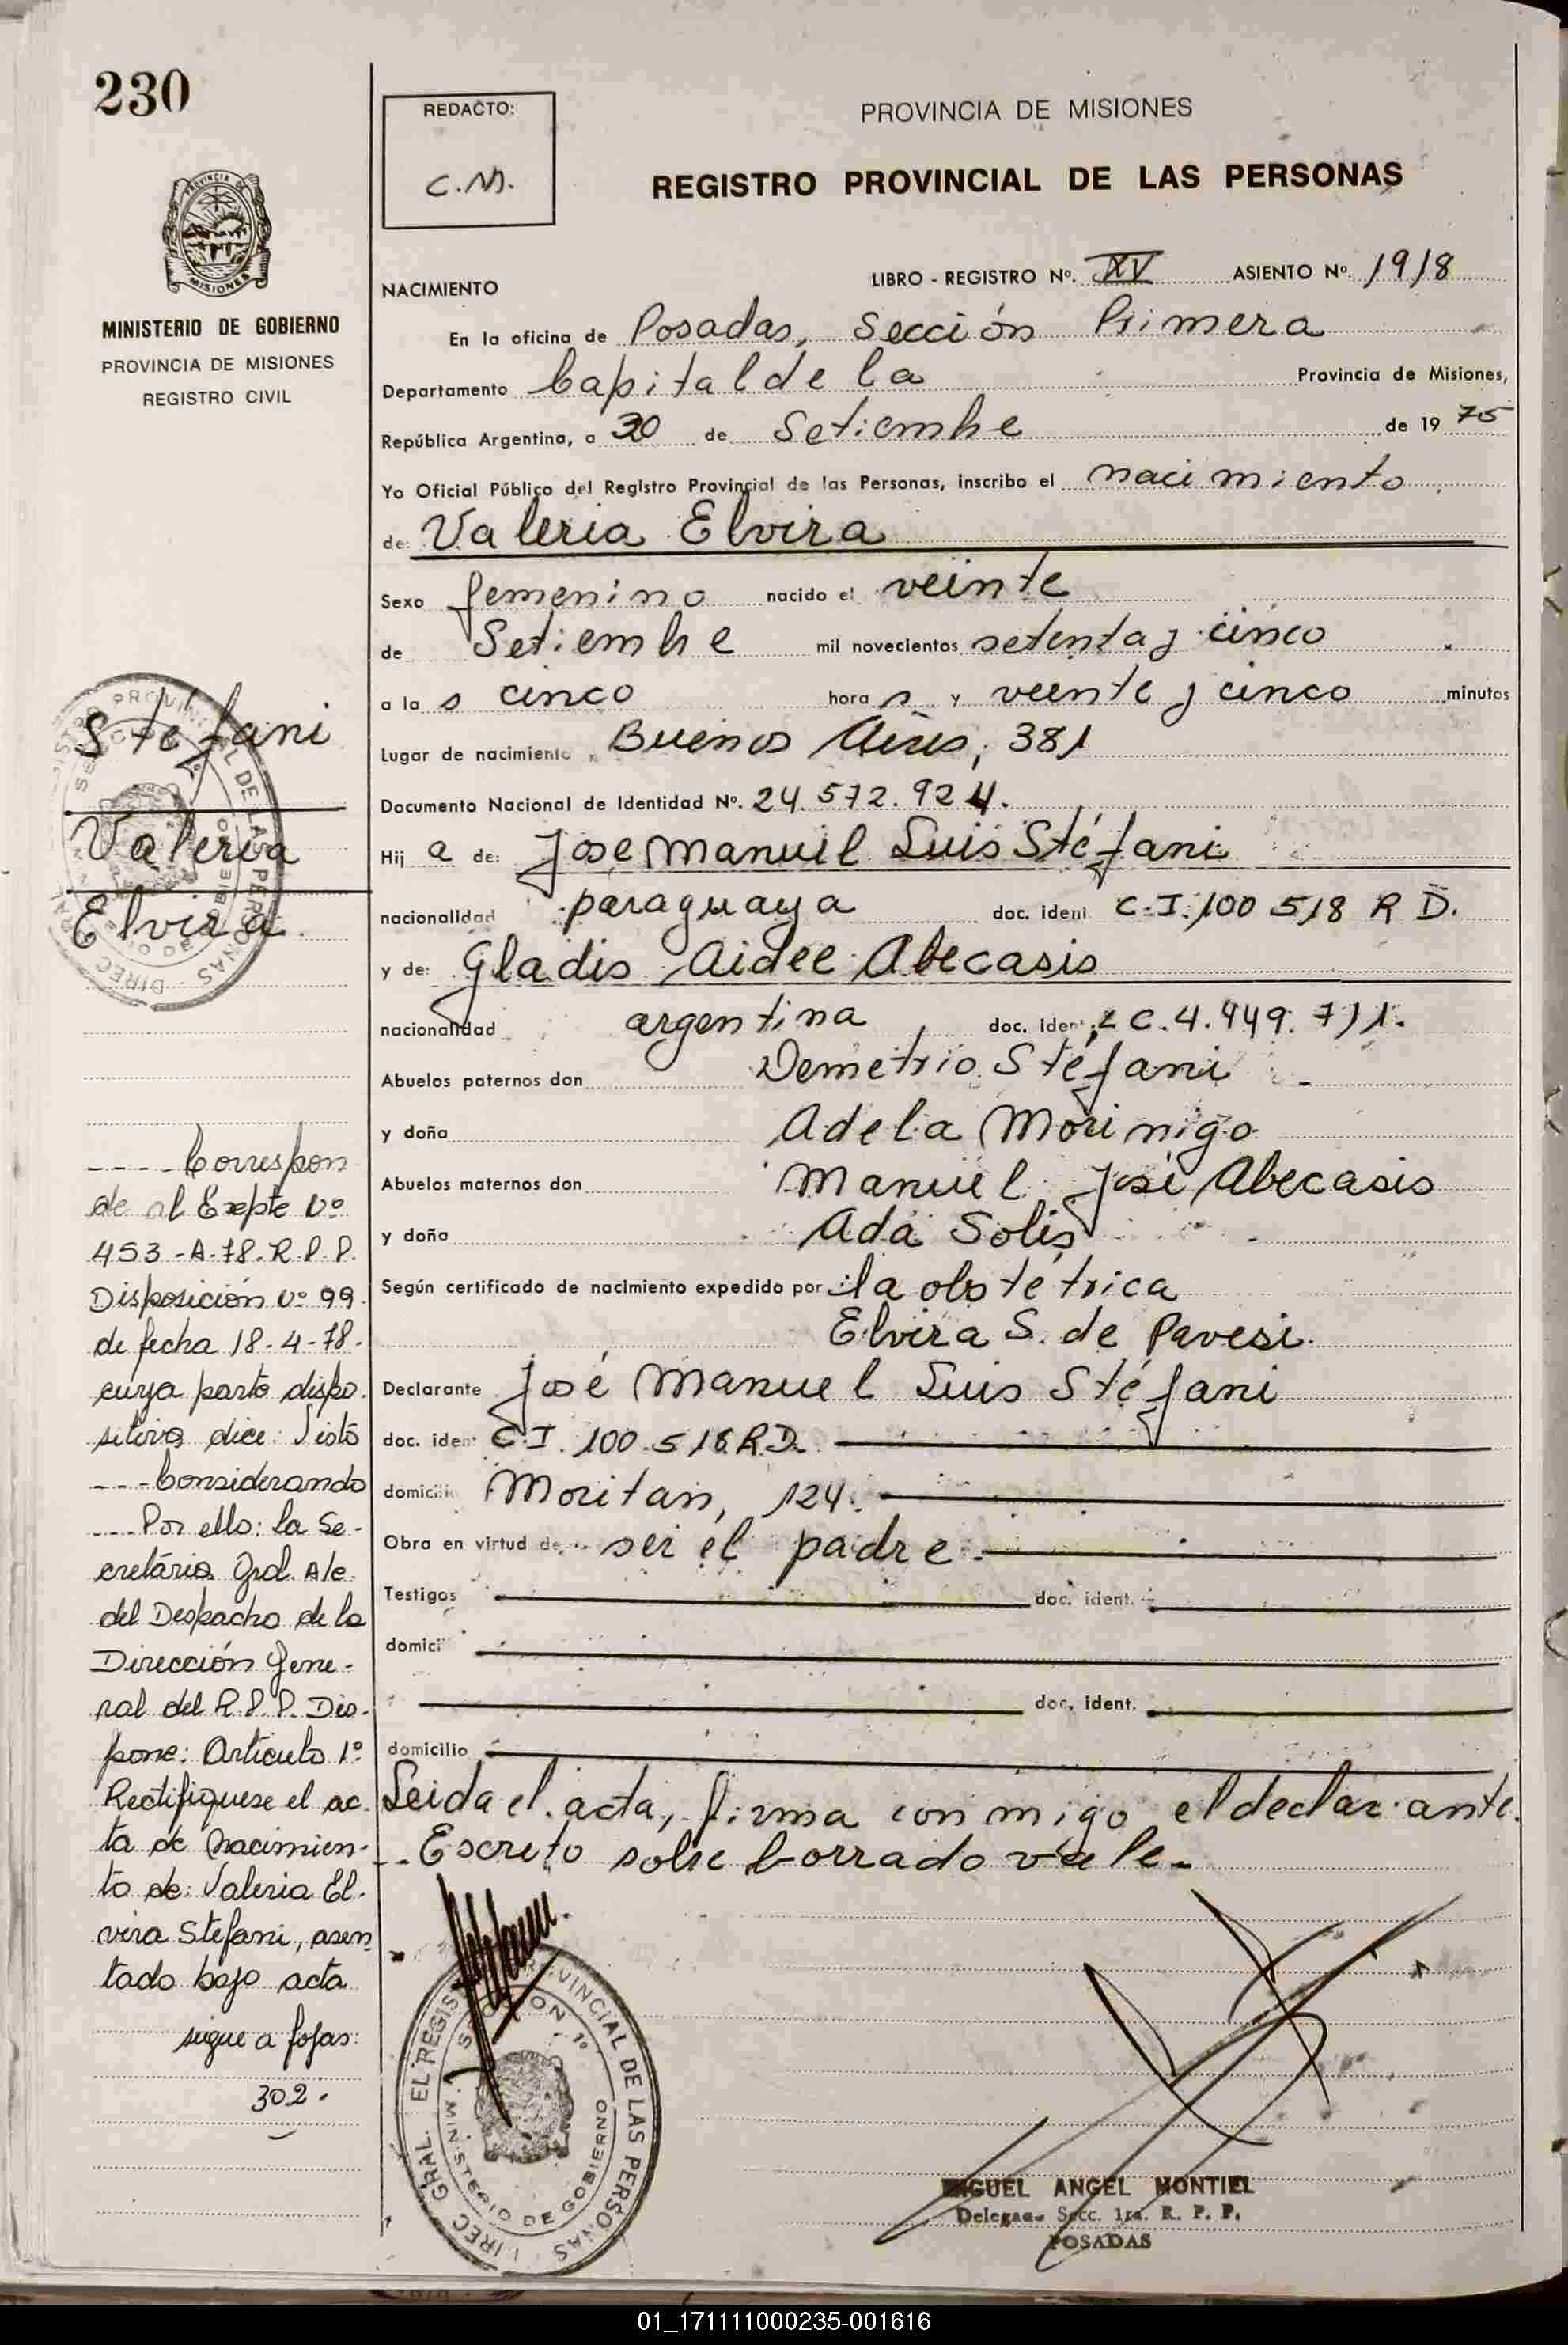 230
REDACTO:
C.M.
PROVINCIA DE MISIONES
REGISTRO PROVINCIAL DE LAS PERSONAS
PROVINCIA DE
MISIONES
MINISTERIO DE GOBIERNO
PROVINCIA DE MISIONES
REGISTRO CIVIL
NACIMIENTO
LIBRO - REGISTRO Nº. XV ASIENTO Nº. 1918
En la oficina de Posadas, Sección Primera
Departamento Capital de la Provincia de Misiones,
República Argentina, a 30 de Setiembre de 19 75
Yo Oficial Público del Registro Provincial de las Personas, inscribo el nacimiento
de: Valeria Elvira
Sexo femenino nacido el veinte
de Setiembre mil novecientos setenta y cinco
a la s cinco hora s y veinte y cinco minutos
Lugar de nacimiento Buenos Aires, 381
Documento Nacional de Identidad Nº. 24.572.924.
Hij a de: José Manuel Luis Stéfani
nacionalidad paraguaya doc. ident C.I. 100 518 R D.
y de: Gladis Aidee Abecasis
nacionalidad argentina, doc. Ident. L C. 4.949.711.
Abuelos paternos don Demetrio Stéfani
y doña Adela Morinigo
Abuelos maternos don Manuel José Abecasis
y doña Ada Solis
Según certificado de nacimiento expedido por la obstétrica
Elvira S. de Pavesi.
Declarante José Manuel Luis Stéfani
doc. ident C.I. 100.518.R.D.
domicilio Moritan, 124.
Obra en virtud de ser el padre.
Testigos doc. ident.
domicilio
doc. ident.
domicilio
Leida el acta, firma conmigo el declarante.
Escrito sobre borrado vale.
Stéfani
Valeria
Elvira
---- Correspon
de al Expte Nº
453-A-78-R.P.P.
Disposición Nº 99
de fecha 18-4-78.
cuya parte dispo.
sitiva dice: Visto
---Considerando
---Por ello: La Se-
cretaria Gral. A/c.
del Despacho de la
Dirección Gene-
ral del R.P.P. Dis-
pone: Artículo 1º
Rectifiquese el ac.
ta de Nacimien-
to de: Valeria El-
vira Stefani, asen
tado bajo acta
sigue a fojas:
302.
DIREC. GRAL. EL REGISTRO PROVINCIAL DE LAS PERSONAS
SECCION 1º
MINISTERIO DE GOBIERNO
MIGUEL ANGEL MONTIEL
Delegado Secc. 1ra. R. P. P.
POSADAS
01_171111000235-001616